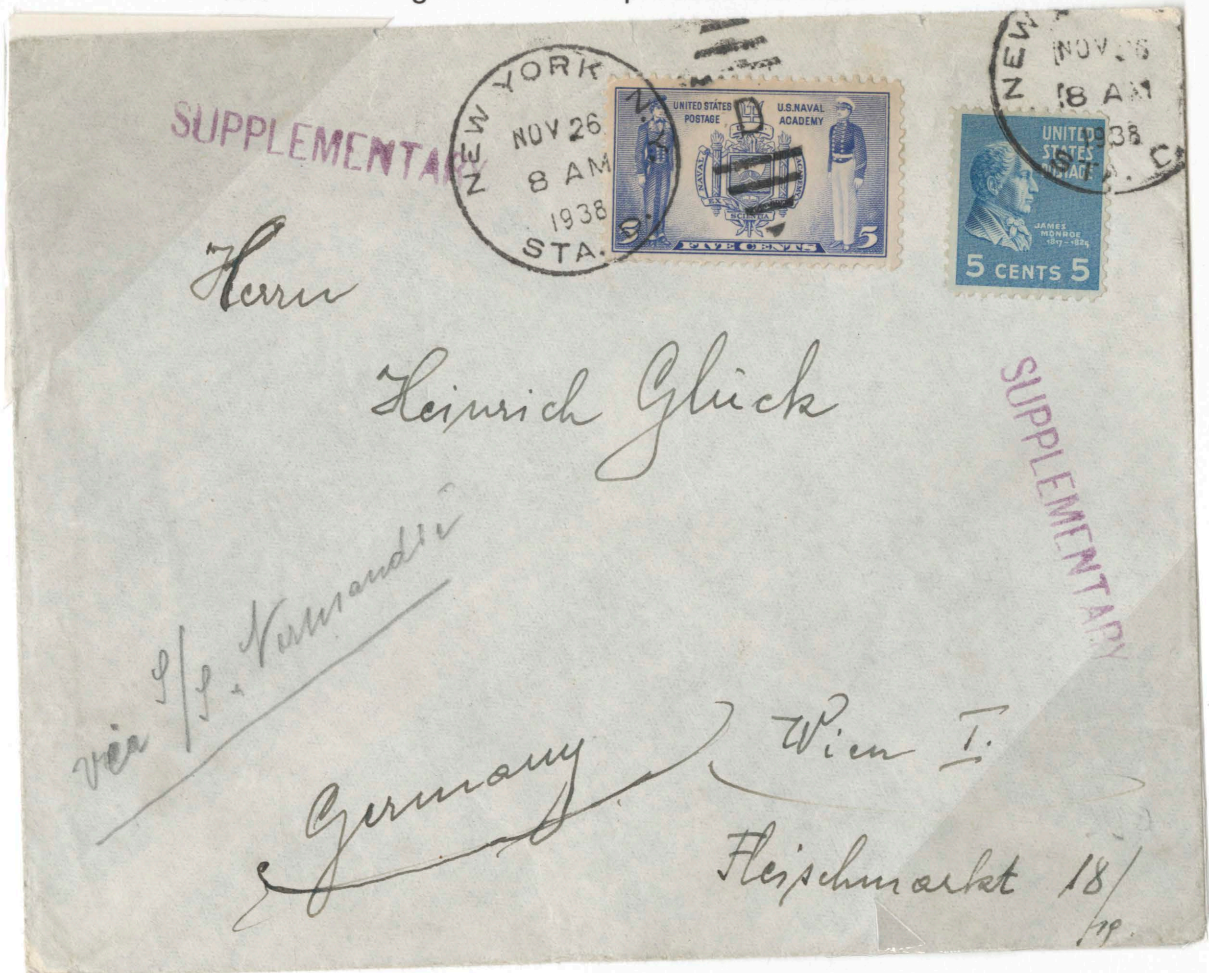 NEW YORK N.Y.
NOV 26
8 AM
1938
STA. D.
D
UNITED STATES POSTAGE
U.S. NAVAL ACADEMY
5 FIVE CENTS 5
NEW
NOV 26
8 AM
1938
STA.
UNITED STATES POSTAGE
JAMES MONROE
1817-1825
5 CENTS 5
SUPPLEMENTARY
Herrn
Heinrich Glück
SUPPLEMENTARY
via S/S. Normandie
Germany
Wien I.
Fleischmarkt 18/